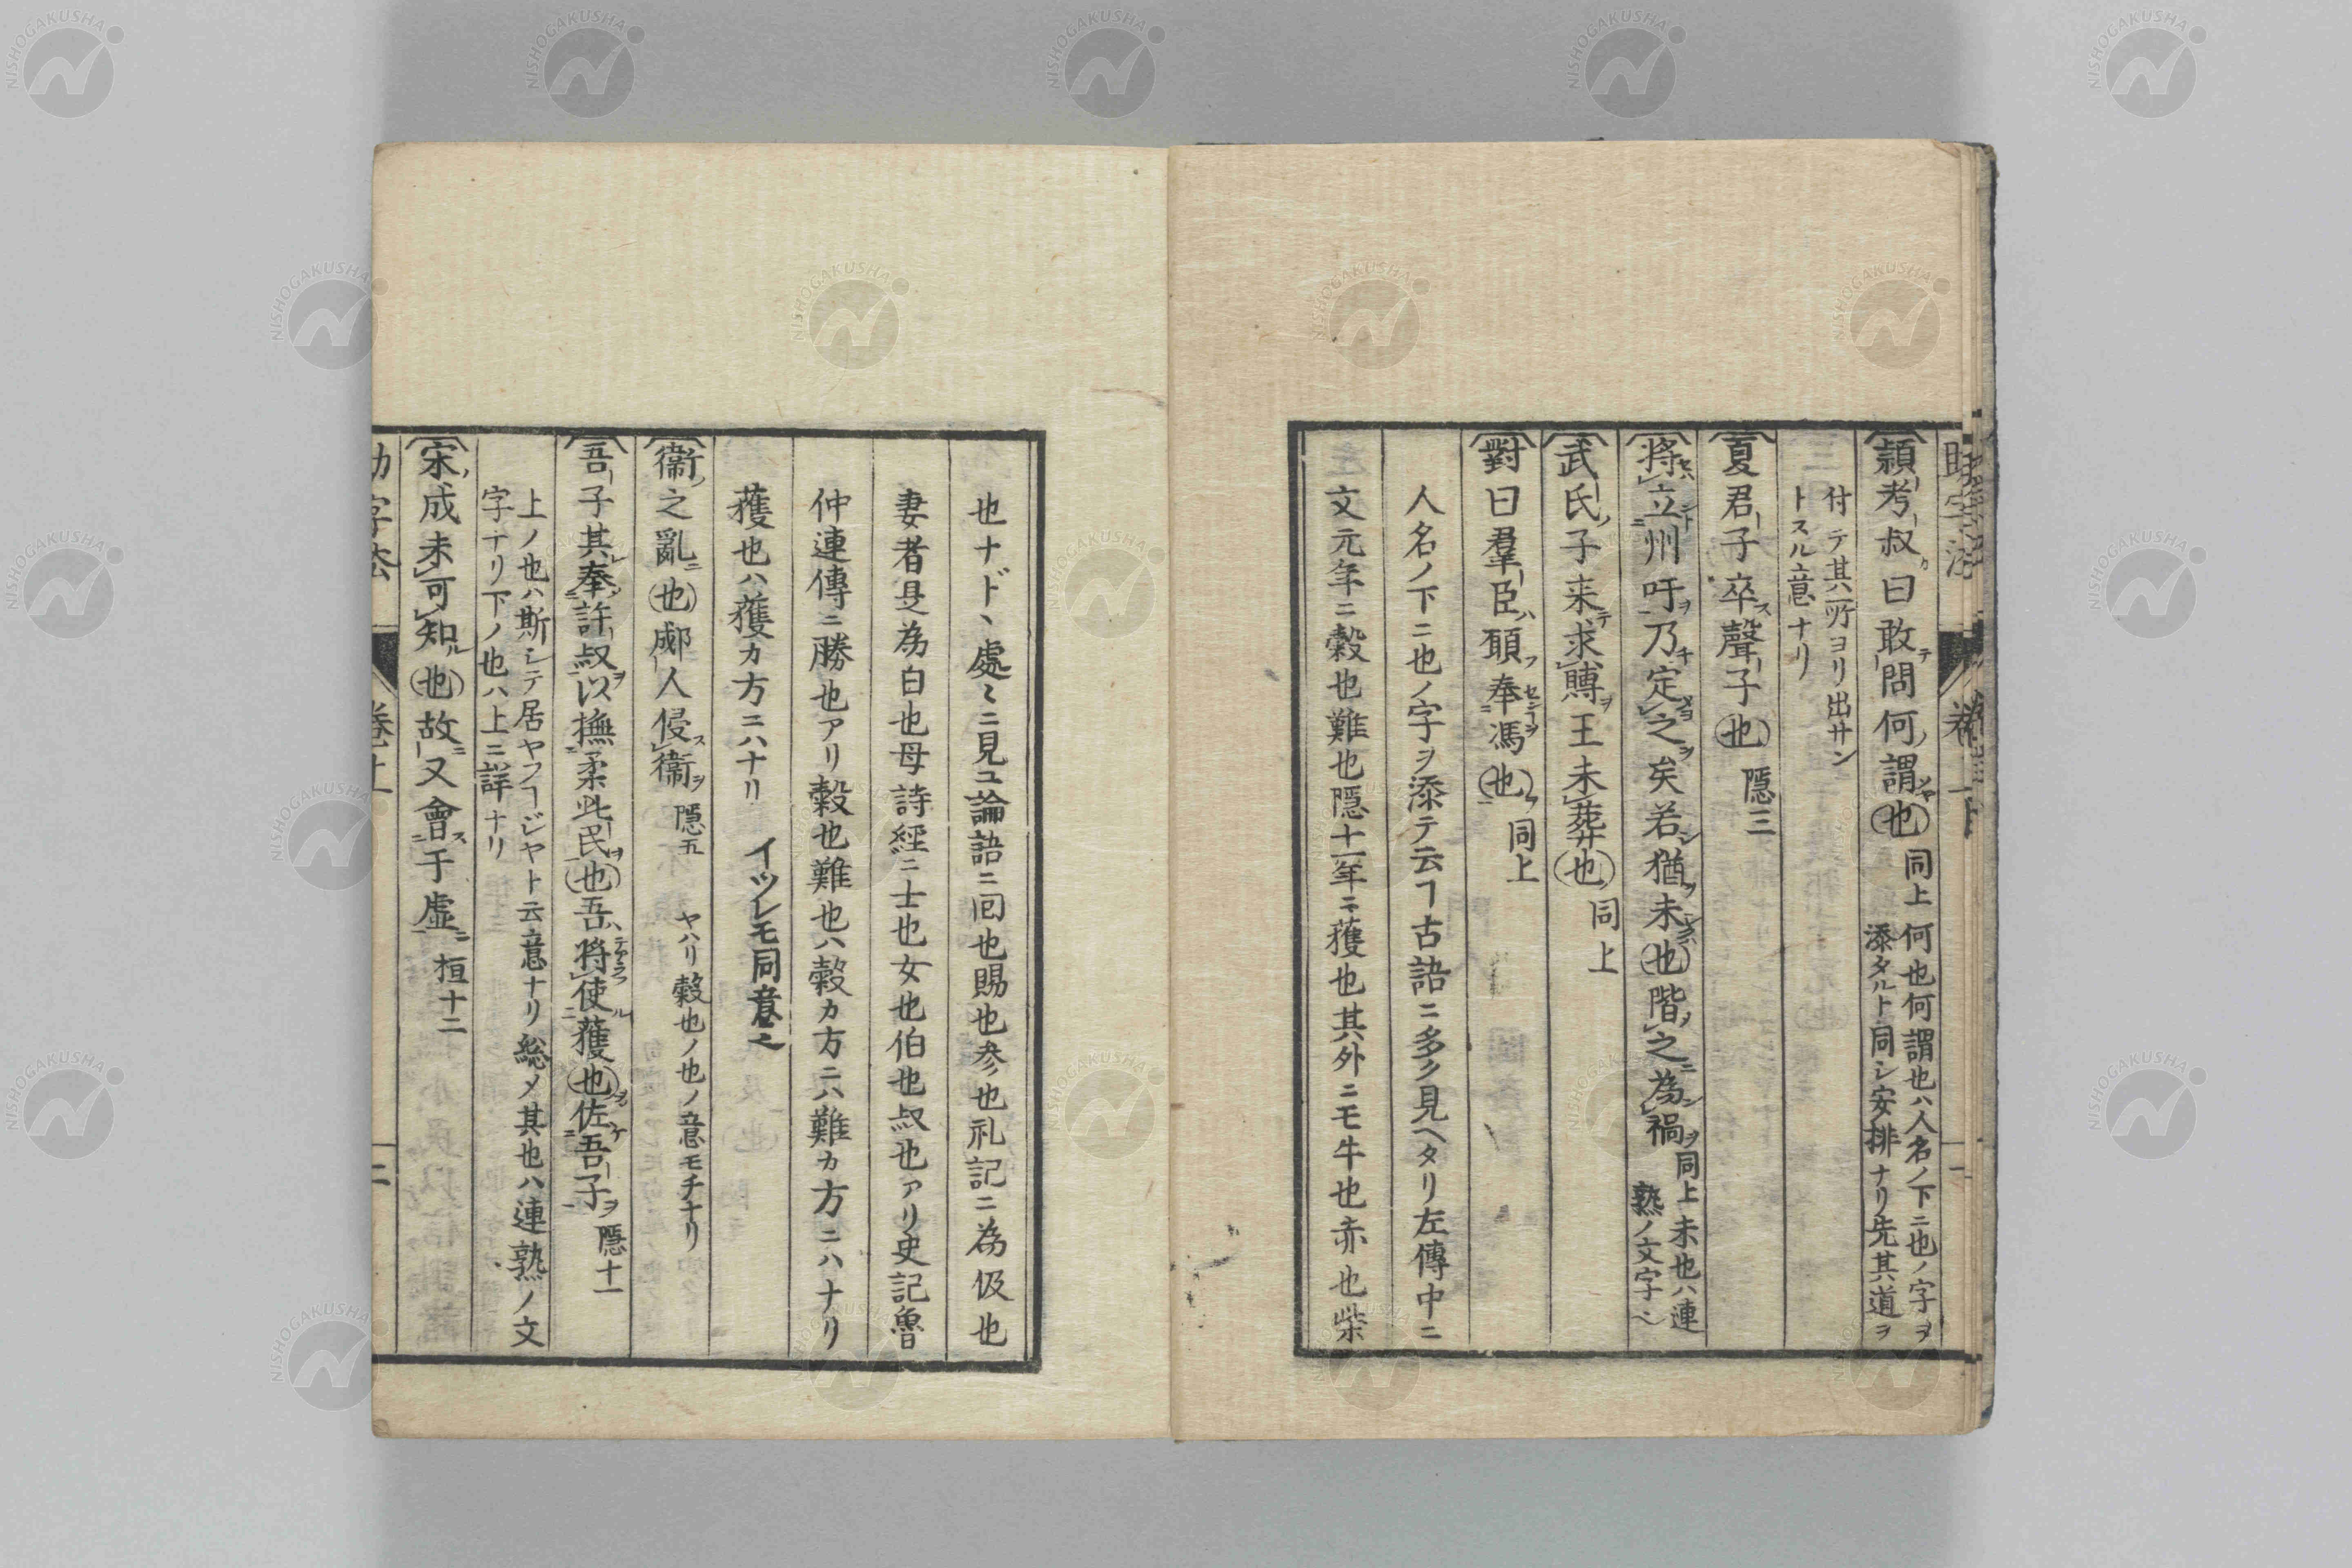 頴考叔曰敢問何謂也 同上 何也何謂也ハ人名ノ下ニ也ノ字ヲ
添タルト同シ安排ナリ先其道ヲ
付テ其所ヨリ出サン
トスル意ナリ
夏君子卒聲子也 隱三
將立州吁乃定之矣若猶未也階之為禍 同上未也ハ連
熟ノ文字
武氏子来求賻王未葬也 同上
對曰羣臣願奉馮也 同上
人名ノ下ニ也ノ字ヲ添テ云ヿ古語ニ多ク見ヘタリ左傳中ニ
文元年ニ穀也難也隱十一年ニ獲也其外ニモ牛也赤也柴
也ナドヽ處〻ニ見ユ論語ニ回也賜也参也礼記ニ為伋也
妻者是為白也母詩經ニ士也女也伯也叔也アリ史記魯
仲連傳ニ勝也アリ穀也難也ハ穀カ方ニハ難カ方ニハナリ
獲也ハ獲カ方ニハナリ イツレモ同意
衞之亂也郕人侵衞 隱五 ヤハリ穀也ノ也ノ意モチナリ
吾子其奉許叔以撫柔此民也吾將使獲也佐吾子 隱十一
上ノ也ハ斯シテ居ヤフヿジヤト云意ナリ総メ其也ハ連熟ノ文
字ナリ下ノ也ハ上ニ詳ナリ
宋成未可知也故又會于虚 桓十二
助字法 卷上 二
NISHOGAKUSHA